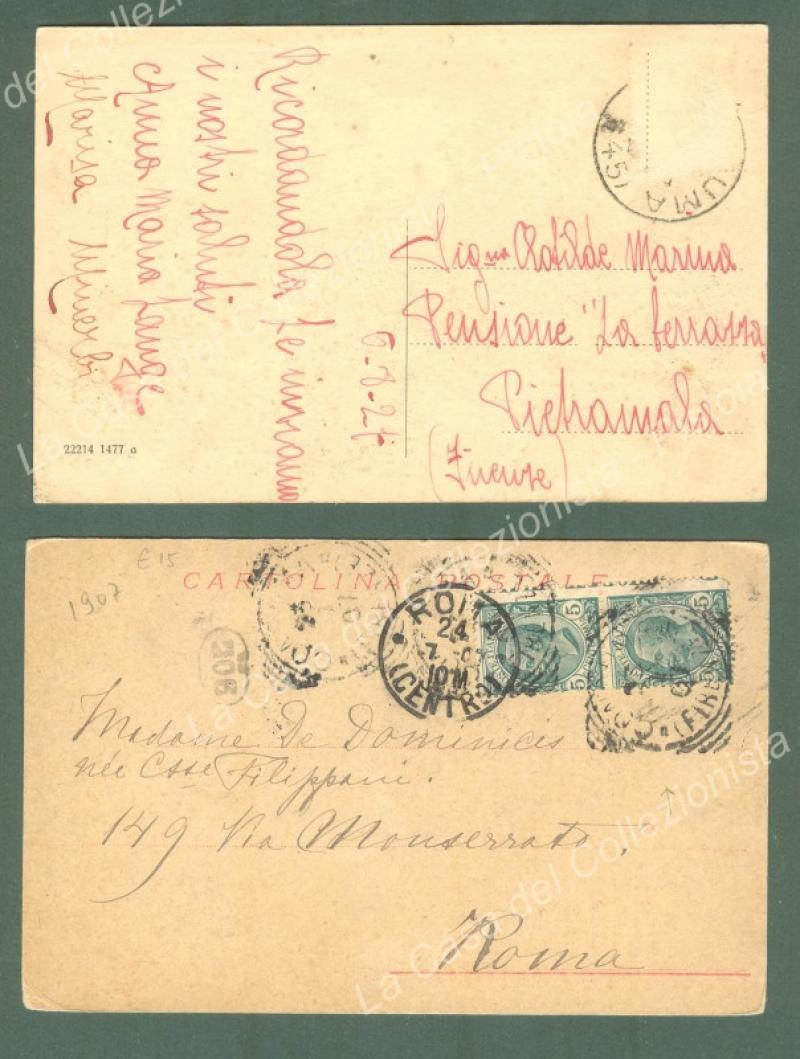 Ricordandola Le inviamo
i nostri saluti
Anna Maria Lange
Marisa Minerbi
6-8-27
22214 1477 a
UMA
(45)
Sigra Clotilde Marina
Pensione "La Terrazza"
Pietramala
(Firenze)
1907 £15
CARTOLINA POSTALE
206
ROMA
24
7
10M
(CENTRO)
5
5
(FIRE
Madame De Dominicis
née Csse Filippani.
149 Via Monserrato.
Roma
La Casa del Collezionista - Pistoia